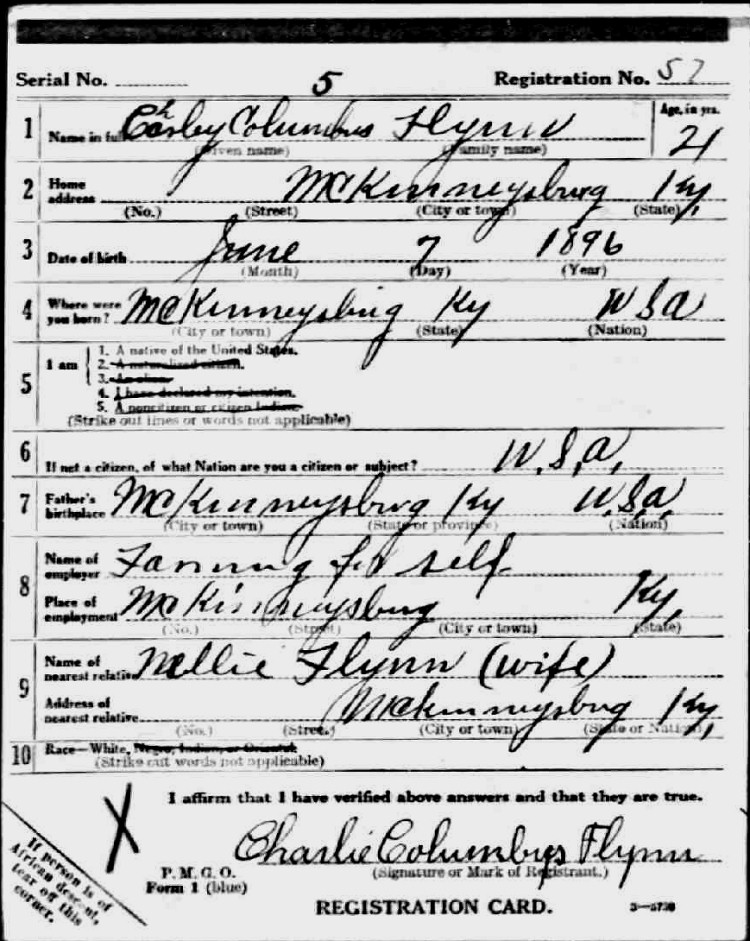 Serial No. 5 Registration No. 57
1 Name in full Charley Columbus Flynn Age, in yrs. 21
(Given name) (Family name)
2 Home address McKinneysburg Ky,
(No.) (Street) (City or town) (State)
3 Date of birth June 7 1896
(Month) (Day) (Year)
4 Where were you born? McKinneysburg Ky U S A
(City or town) (State) (Nation)
5 I am
1. A native of the United States.
2. A naturalized citizen.
3. An alien
4. I have declared my intention.
5. A noncitizen or citizen Indian.
(Strike out lines or words not applicable)
6 If not a citizen, of what Nation are you a citizen or subject? U.S.A.
7 Father's birthplace McKinneysburg Ky U.S.A.
(City or town) (State or province) (Nation)
8 Name of employer Farming for self
Place of employment McKinneysburg Ky,
(No.) (Street) (City or town) (State)
9 Name of nearest relative Nellie Flynn (wife)
Address of nearest relative McKinneysburg Ky,
(No.) (Street) (City or town) (State or Nation)
10 Race—White, Negro, Indian, or Oriental
(Strike out words not applicable)
I affirm that I have verified above answers and that they are true.
X Charlie Columbus Flynn
P. M. G. O. (Signature or Mark of Registrant.)
Form 1 (blue)
REGISTRATION CARD. 3—5730
If person is of
African descent,
tear off this
corner.